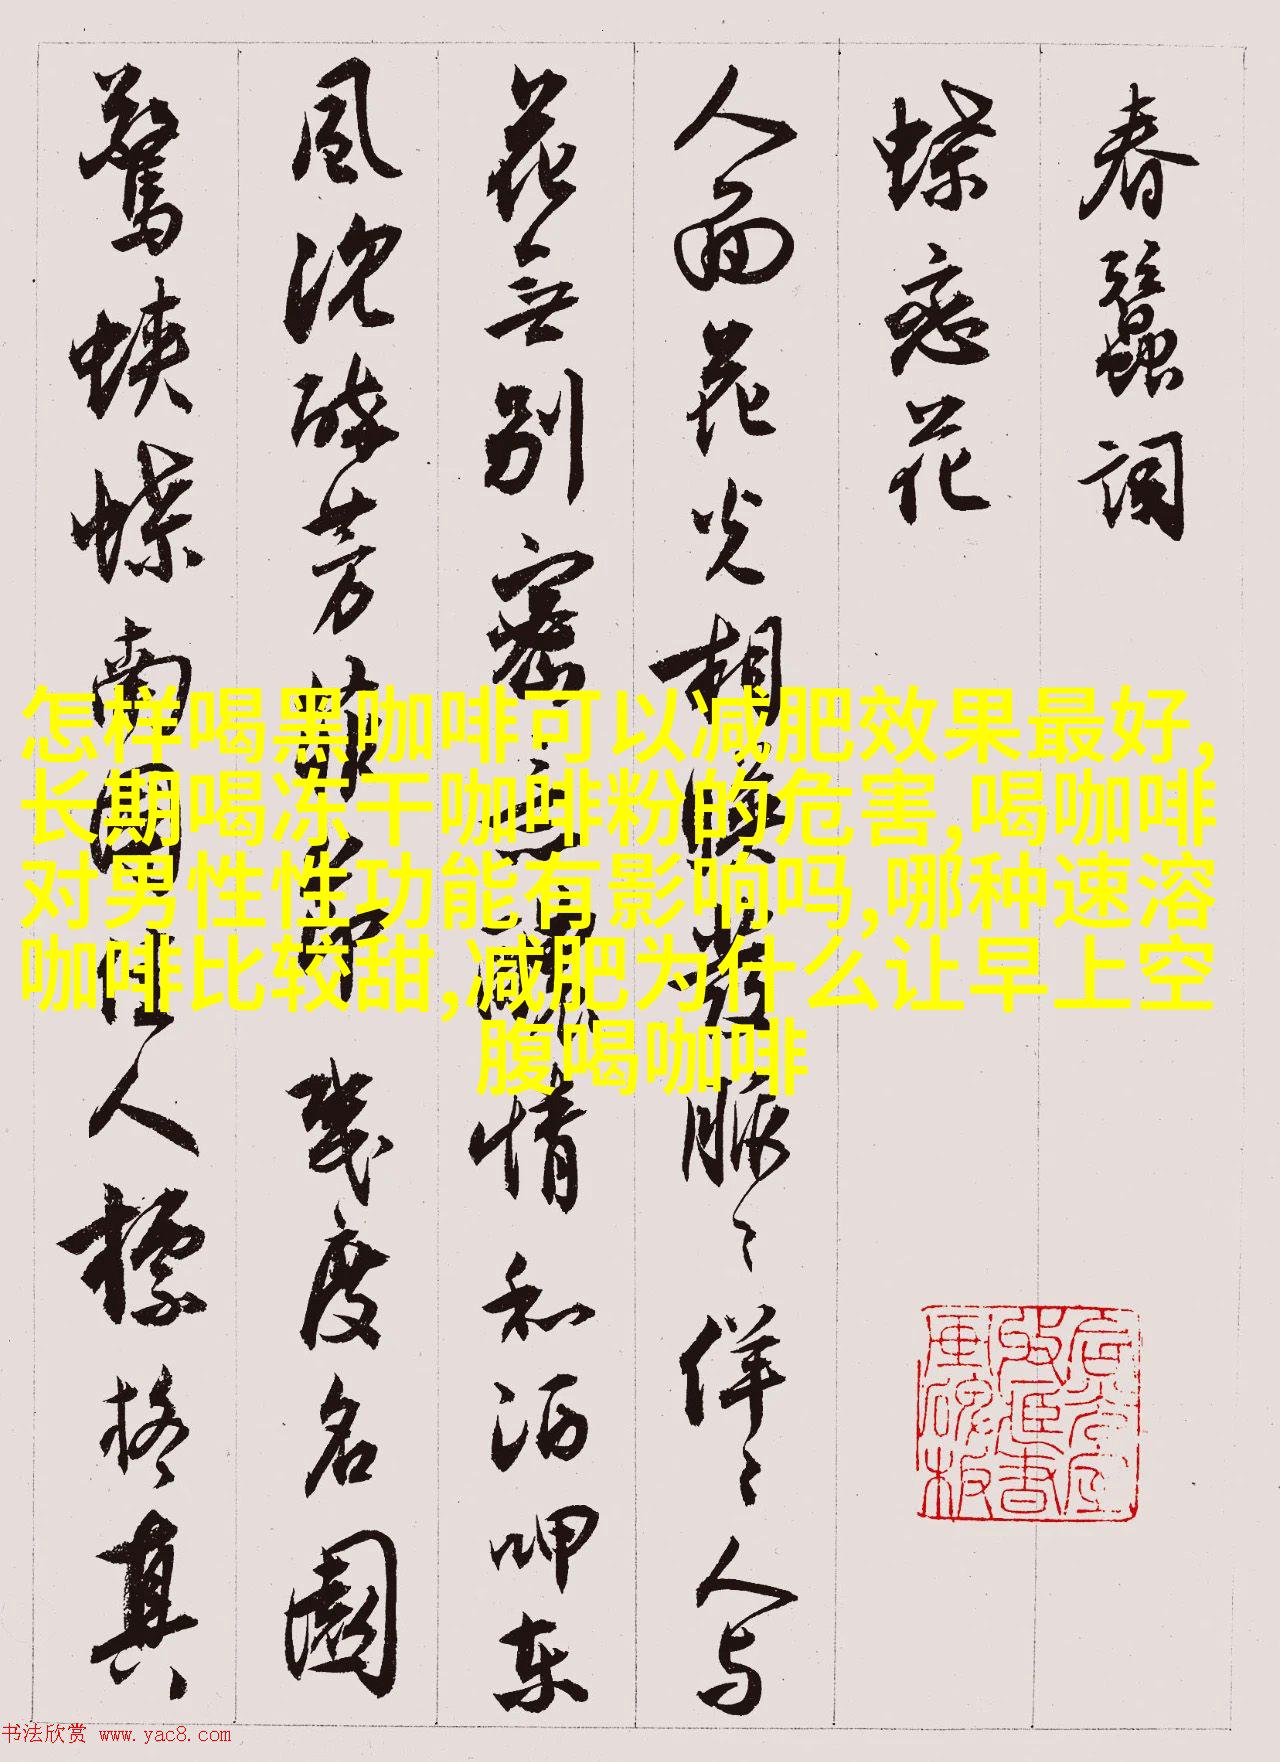 春蠶詞
蝶戀花
人面花光相映發脈〻佯〻人与
花無別密意濃情和酒呷東
風沈醉芳菲節幾度名園
驚蛺蝶南國佳人標格真
怎样喝黑咖啡可以减肥效果最好,
长期喝冻干咖啡粉的危害,喝咖啡
对男性性功能有影响吗,哪种速溶
咖啡比较甜,减肥为什么让早上空
腹喝咖啡
书法欣赏 www.yac8.com